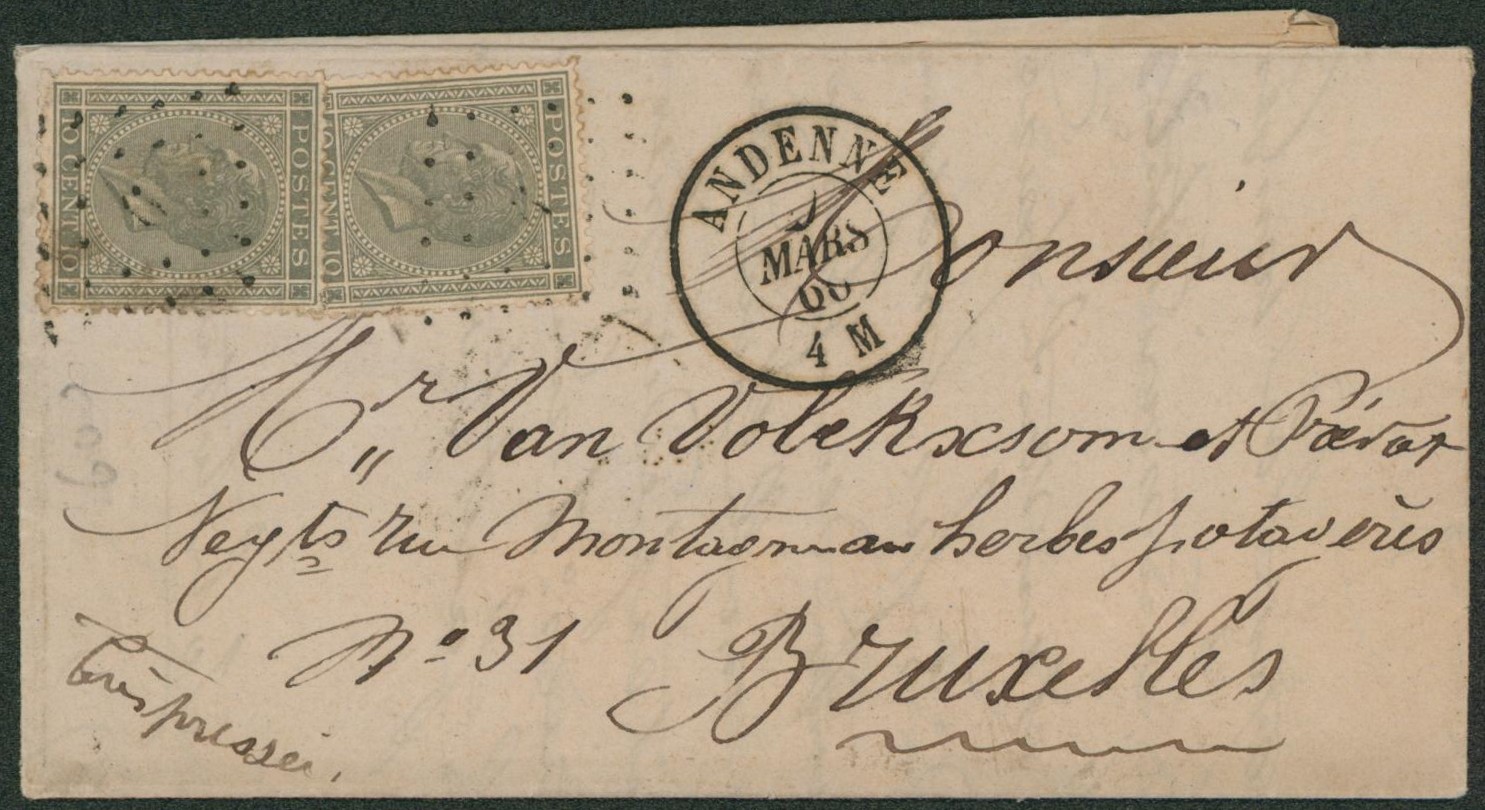 POSTES
10 CENT. 10
POSTES
10 CENT. 10
ANDENNE
MARS
4 M
Monsieur
Mr Van Volckxsom et Prévot
Neyts rue Montagne aux herbes potagères
No 31 Bruxelles
très pressée.